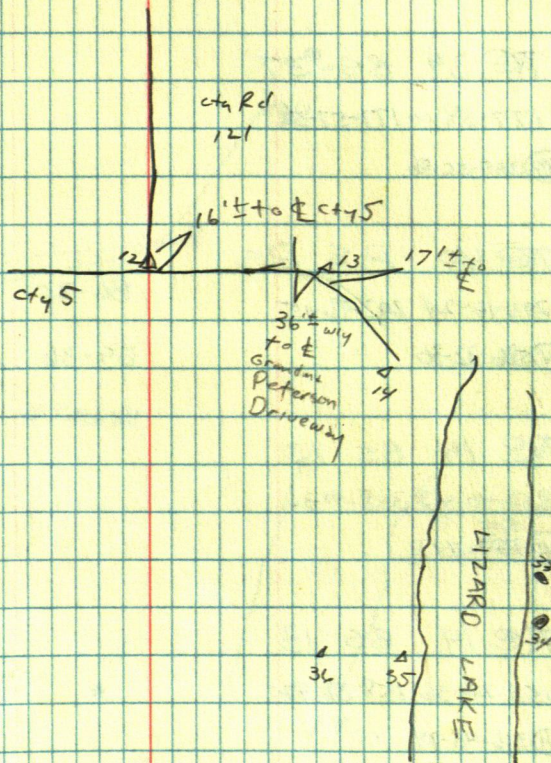 cty Rd
121
16'± to ℄ cty 5
12
13
17'± to
℄
cty 5
36'± wly
to ℄
Grandma
Peterson
Driveway
14
LIZARD LAKE
34
36
35